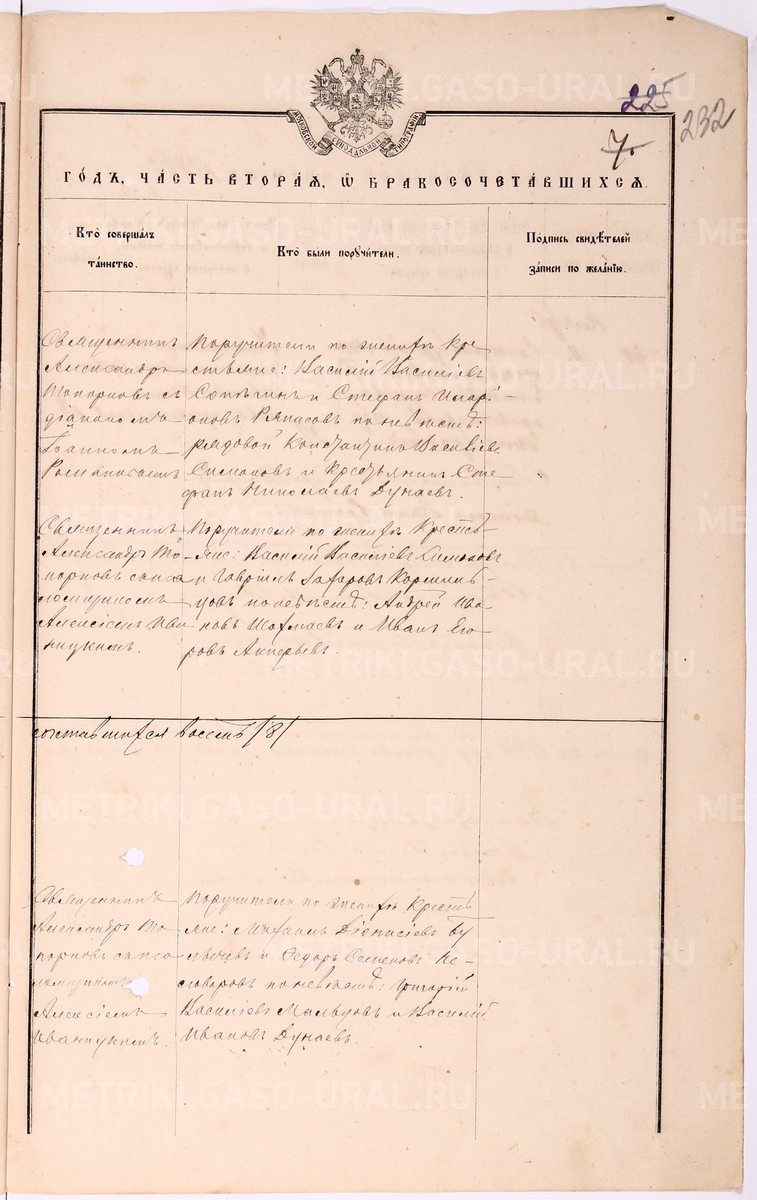 МОСКОВСКОЙ СѴНОДАЛЬНОЙ ТИПОГРАФІИ
225
232
7.
ГО́ДЪ, ЧА́СТЬ ВТОРА́Я, Ѡ БРАКОСОЧЕТА́ВШИХСЯ.
Кто̀ соверша́лъ
та́инство.
Кто̀ были порꙋчи́тели.
По́дпись свидѣ́телей
за́писи по жела́нїю.
Священникъ
Александръ
Топорковъ съ
діакономъ
Іоанномъ
Поручители по женихѣ кре
стьяне: Василій Василіевъ
и Стефанъ Илларі-
оновъ по невѣстѣ:
рядовой Константинъ Василіевъ
Симаковъ и крестьянинъ Сте
фанъ Николаевъ Дунаевъ.
Священникъ
Александръ То-
порковъ съ пса
ломщикомъ
Алексіемъ Ива
ницкимъ.
Поручители по женихѣ Кресть-
яне: Василій Василіевъ Симаковъ
и Гавріилъ Захаровъ
по невѣстѣ: Андрей Ива-
новъ и Иванъ Его-
ровъ
сочетавшихся восемь /8/
Священникъ
Александръ То
порковъ съ пса
ломщикомъ
Алексіемъ
Иваницкимъ.
Поручители по женихѣ Кресть
яне: Михаилъ Діонисіевъ
и Ѳедоръ Семеновъ
по невѣстѣ: Григорій
Василіевъ Мальцовъ и Василій
Ивановъ Дунаевъ.
METRIKI.GASO-URAL.RU